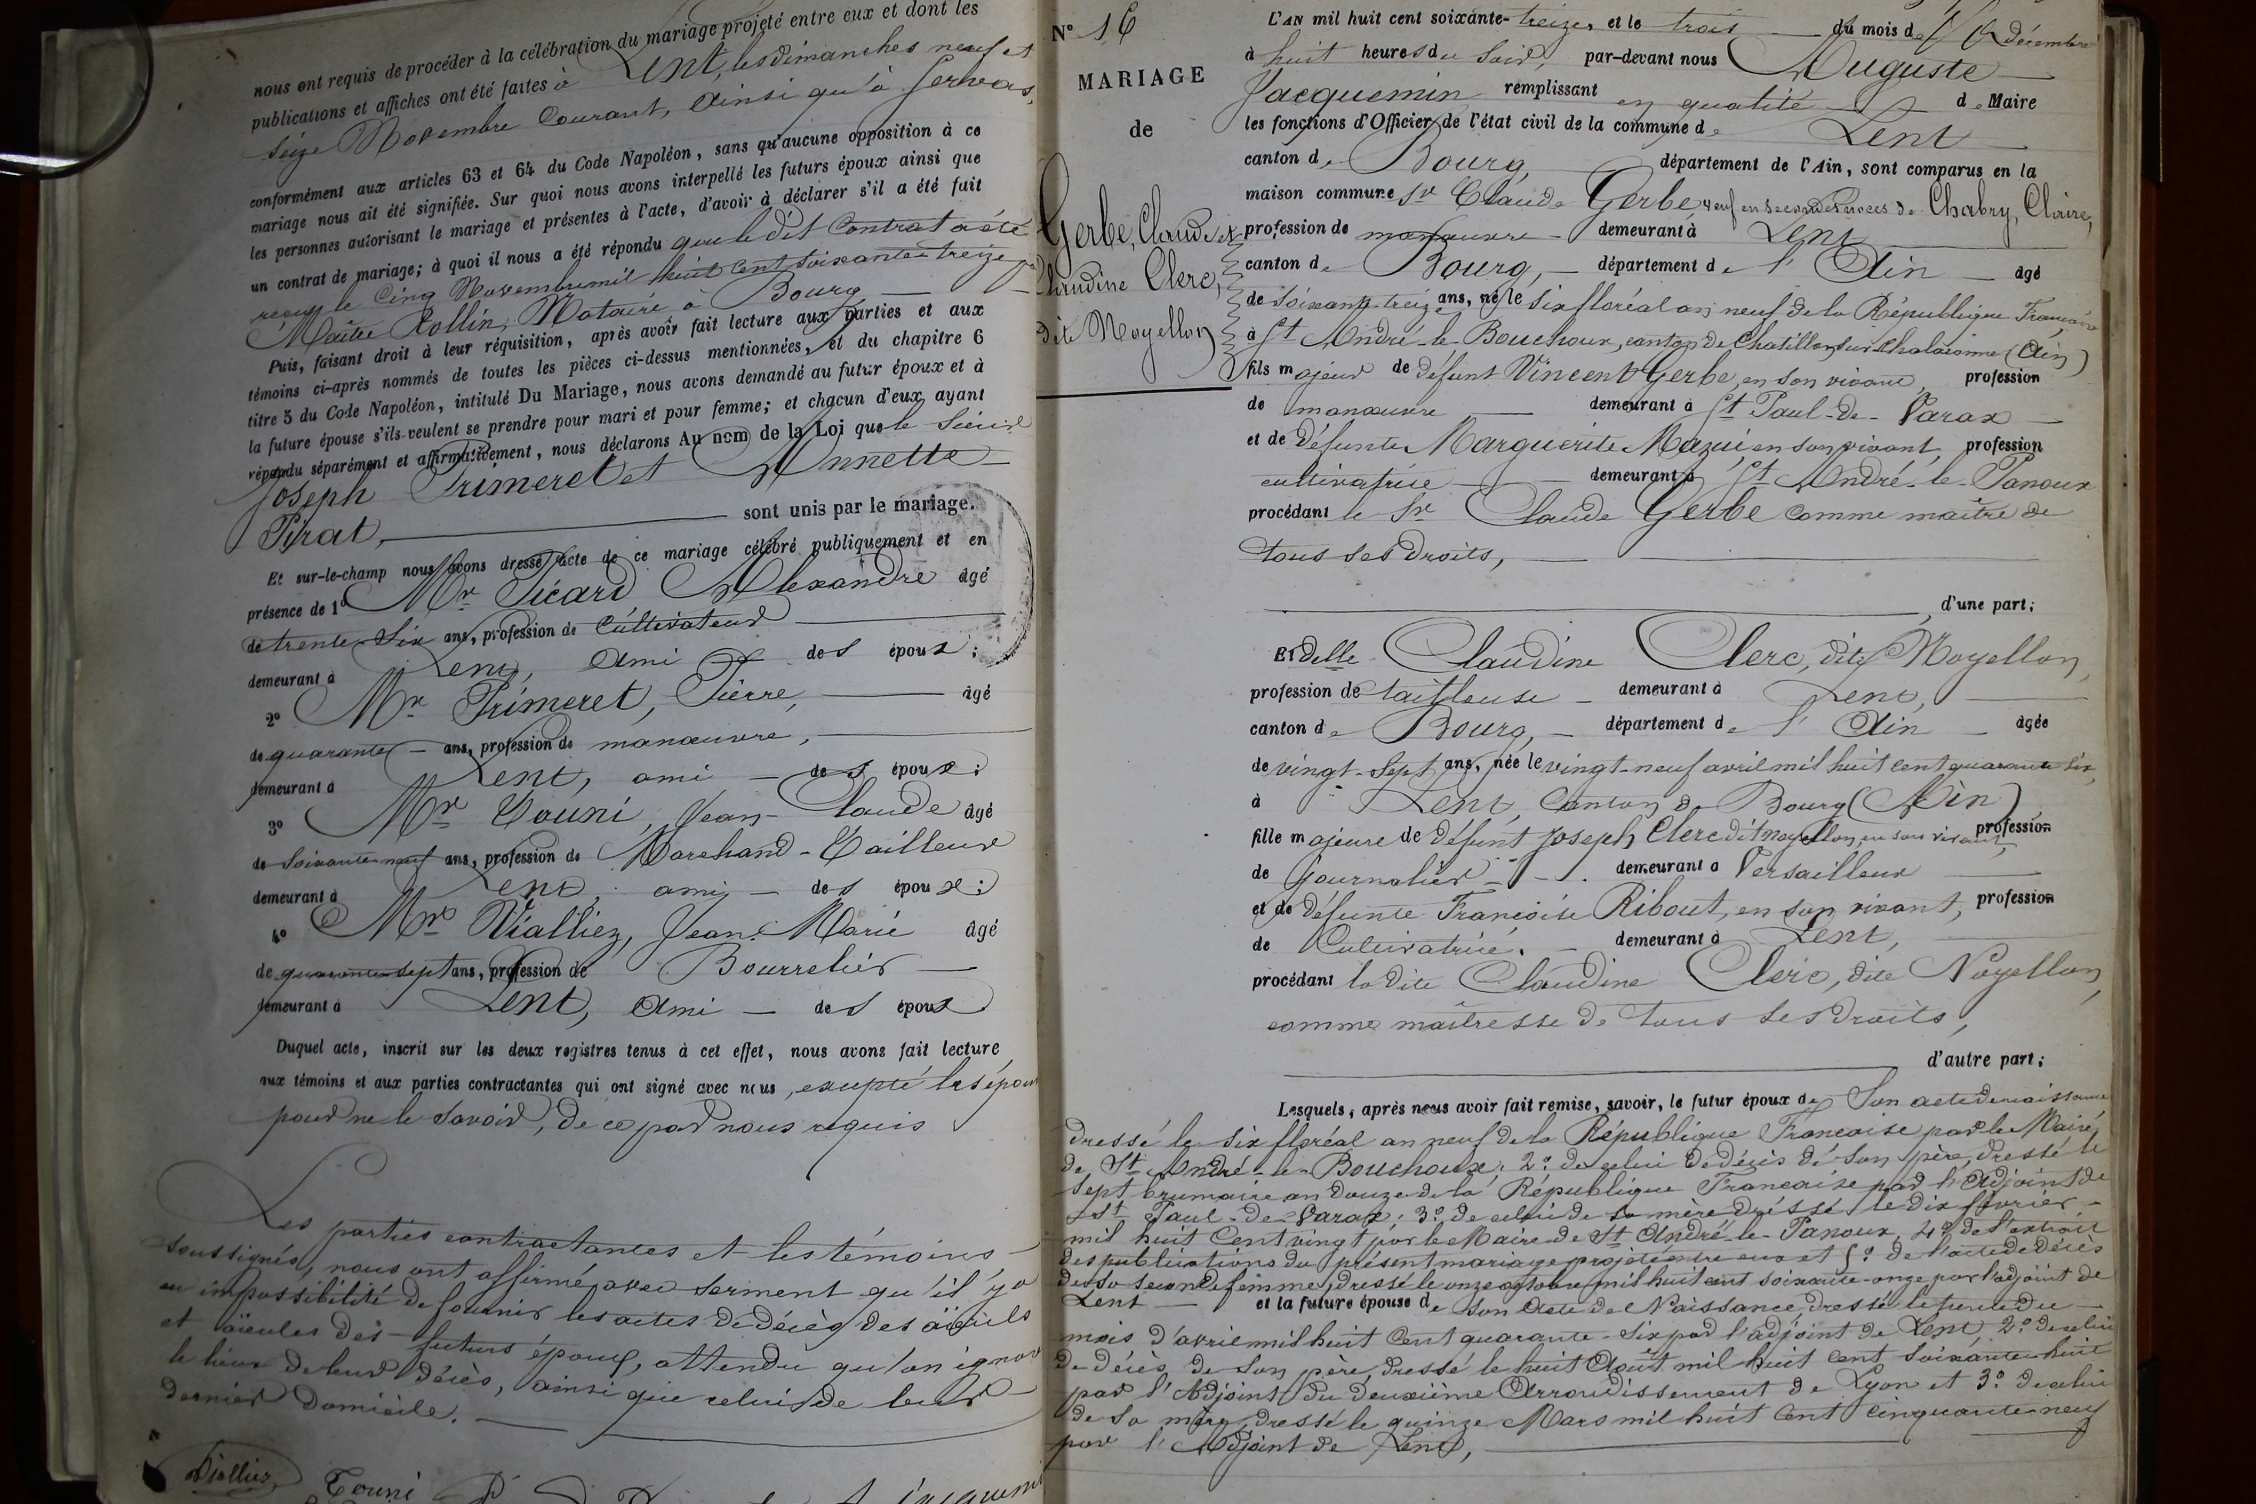 nous ont requis de procéder à la célébration du mariage projeté entre eux et dont les
publications et affiches ont été faites à Lent, les dimanches neuf et
seize Novembre Courant, Ainsi qu'à Servas,
conformément aux articles 63 et 64 du Code Napoléon, sans qu'aucune opposition à ce
mariage nous ait été signifiée. Sur quoi nous avons interpellé les futurs époux ainsi que
les personnes autorisant le mariage et présentes à l'acte, d'avoir à déclarer s'il a été fait
un contrat de mariage; à quoi il nous a été répondu que le dit Contrat a été
reçu le Cinq Novembre mil huit cent soixante-treize par
Maître Rollin, Notaire à Bourg
Puis, faisant droit à leur réquisition, après avoir fait lecture aux parties et aux
témoins ci-après nommés de toutes les pièces ci-dessus mentionnées, et du chapitre 6
titre 5 du Code Napoléon, intitulé Du Mariage, nous avons demandé au futur époux et à
la future épouse s'ils veulent se prendre pour mari et pour femme; et chacun d'eux ayant
répondu séparément et affirmativement, nous déclarons Au nom de la Loi que le Sieur
Joseph Primeret et Annette
Pirat, sont unis par le mariage.
Et sur-le-champ nous avons dressé acte de ce mariage célébré publiquement et en
présence de 1º Mr Picard Alexandre âgé
de trente-Six ans, profession de Cultivateur
demeurant à Lent, Ami des époux;
2º Mr Primeret, Pierre, âgé
de quarante ans, profession de manœuvre,
demeurant à Lent, ami des époux;
3º Mr Touni, Jean-Claude âgé
de Soixante-neuf ans, profession de Marchand-Tailleur
demeurant à Lent, ami des époux;
4º Mr Vialliez, Jean-Marie âgé
de quarante-sept ans, profession de Bourrelier
demeurant à Lent, Ami des époux
Duquel acte, inscrit sur les deux registres tenus à cet effet, nous avons fait lecture
aux témoins et aux parties contractantes qui ont signé avec nous, excepté les époux
pour ne le Savoir, de ce par nous requis
Les parties contractantes et les témoins
soussignés, nous ont affirmé avec serment qu'il y a
eu impossibilité de fournir les actes de décès des aïeuls
et aïeules des futurs époux, attendu qu'on ignore
le lieu de leur décès, ainsi que celui de leur
dernier Domicile.
Vialliez Touni
Nº 16
MARIAGE
de
Gerbe, Claude et
Claudine Clerc,
dite Noyellon
L'AN mil huit cent soixante-treize, et le trois du mois de Décembre
à huit heures du Soir, par-devant nous Auguste
Jacquemin remplissant en qualité de Maire
les fonctions d'Officier de l'état civil de la commune de Lent
canton de Bourg, département de l'Ain, sont comparus en la
maison commune Sr Claude Gerbe, veuf en secondes noces de Chabry, Claire,
profession de manœuvre demeurant à Lent
canton de Bourg, département de l'Ain âgé
de soixante-treize ans, né le six floréal an neuf de la République Française
à St André-le-Bouchoux, canton de Chatillon sur Chalaronne (Ain)
fils majeur de défunt Vincent Gerbe, en son vivant, profession
de manœuvre demeurant à St Paul-de-Varax
et de Défunte Marguerite Mazui, en son vivant, profession
cultivatrice demeurant à St André-le-Panoux
procédant le Sr Claude Gerbe comme maître de
tous ses Droits,
d'une part;
Et Delle Claudine Clerc, dite Noyellon,
profession de tailleuse demeurant à Lent,
canton de Bourg, département de l'Ain âgée
de vingt-Sept ans, née le vingt-neuf avril mil huit cent quarante six,
à Lent, Canton de Bourg (Ain)
fille majeure de Défunt Joseph Clerc dit noyellon, en son vivant, profession
de Journalier demeurant à Versailleux
et de Défunte Françoise Ribout, en son vivant, profession
de Cultivatrice, demeurant à Lent,
procédant la dite Claudine Clerc, dite Noyellon,
comme maîtresse de tous ses Droits,
d'autre part;
Lesquels, après nous avoir fait remise, savoir, le futur époux de Son acte de naissance
dressé le six floréal an neuf de la République Française par le Maire
de St André-le-Bouchoux; 2º de celui de décès de son père, dressé le
sept brumaire an Douze de la République Française par l'Adjoint de
St Paul-de-Varax; 3º de celui de sa mère dressé le dix février
mil huit Cent vingt par le Maire de St André-le-Panoux, 4º de l'extrait
des publications du présent mariage projeté entre eux et 5º de l'acte de décès
de sa seconde femme, dressé le onze octobre mil huit cent soixante-onze par l'adjoint de
Lent et la future épouse de Son Acte de Naissance, dressé le trente du
mois d'avril mil huit Cent quarante-Six par l'adjoint de Lent, 2º de celui
de décès de Son père, dressé le huit Août mil huit cent soixante-huit
par l'Adjoint du deuxième Arrondissement de Lyon et 3º de celui
de Sa mère, dressé le quinze Mars mil huit Cent Cinquante-neuf
par l'Adjoint de Lent,